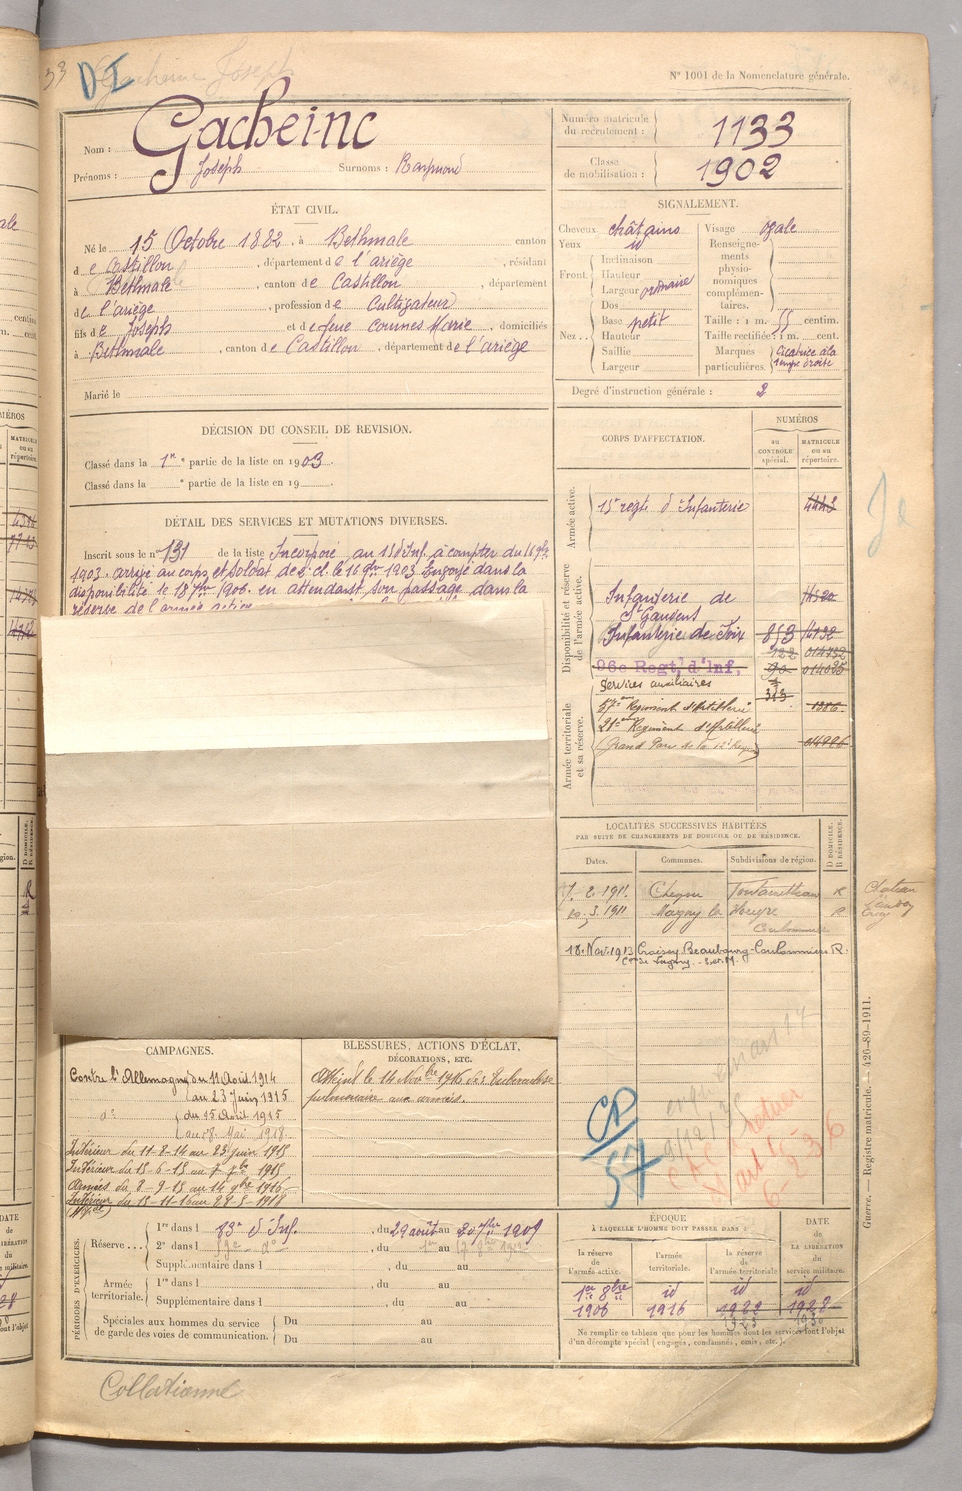 33 DI Gacheinc Joseph
N° 1001 de la Nomenclature générale.
Nom : Gacheinc
Prénoms : Joseph Surnoms : Raymond
Numéro matricule du recrutement : 1133
Classe de mobilisation : 1902
ÉTAT CIVIL.
Né le 15 Octobre 1882, à Bethmale canton
de Castillon, département de l'ariège, résidant
à Bethmale, canton de Castillon, département
de l'ariège, profession de Cultivateur
fils de Joseph et de feue Counes Marie, domiciliés
à Bethmale, canton de Castillon, département de l'ariège
Marié le
SIGNALEMENT.
Cheveux châtains
Yeux id
Front : Inclinaison
Hauteur
Largeur ordinaire
Nez : Dos
Base petit
Hauteur
Saillie
Largeur
Visage ovale
Renseignements physionomiques complémentaires.
Taille : 1 m. 55 centim.
Taille rectifiée : 1 m. cent.
Marques particulières. Cicatrice à la tempe droite
Degré d'instruction générale : 2
DÉCISION DU CONSEIL DE REVISION.
Classé dans la 1re partie de la liste en 1903.
Classé dans la ° partie de la liste en 19
DÉTAIL DES SERVICES ET MUTATIONS DIVERSES.
Inscrit sous le n° 131 de la liste Incorporé au 15 d'Inf. à compter du 16 9bre
1903. arrivé au corps et soldat de 2e cl. le 16 9bre 1903 Envoyé dans la
disponibilité le 18 7bre 1906. en attendant son passage dans la
réserve de l'armée active
CORPS D'AFFECTATION.
NUMÉROS
au contrôle spécial.
matricule ou au répertoire.
Armée active.
15e regt. d'Infanterie 4443
Disponibilité et réserve de l'armée active.
Infanterie de St Gaudens
Infanterie de Foix 853
96e Regt. d'Inf.
Armée territoriale et sa réserve.
Services auxiliaires
57eme Regiment d'Artillerie
21eme Regiment d'Artillerie
(Grand Parc de la 12e Region)
LOCALITÉS SUCCESSIVES HABITÉES
PAR SUITE DE CHANGEMENTS DE DOMICILE OU DE RÉSIDENCE.
Dates. Communes. Subdivisions de région. D domicile. R résidence.
7. 2. 1911. Fontainebleau R
3. 1911 Magny le Hongre Coulommiers R
18. Nov. 1913 Croissy Beaubourg Coulommiers R.
CAMPAGNES.
Contre l'Allemagne du 11 Août 1914
au 23 Juin 1915
d° du 15 Août 1915
au 28 Mai 1918.
Intérieur du 11-8-14 au 23 juin 1915
Intérieur du 15-6-15 au 7 7bre 1915
Armées du 8-9-15 au 14 9bre 1916
Intérieur du 15-11-16 au 28-5-1918
BLESSURES, ACTIONS D'ÉCLAT,
DÉCORATIONS, ETC.
Atteint le 14 Novbre 1916 de tuberculose
pulmonaire aux armées.
CD/57
6-2-36
PÉRIODES D'EXERCICES.
Réserve... 1re dans l 83e d'Inf., du 29 août au 20 7bre 1909
2e dans l 59e d°, du au
Supplémentaire dans l, du au
Armée territoriale. 1re dans l, du au
Supplémentaire dans l, du au
Spéciales aux hommes du service de garde des voies de communication. Du au
Du au
ÉPOQUE
À LAQUELLE L'HOMME DOIT PASSER DANS :
la réserve de l'armée active. l'armée territoriale. la réserve de l'armée territoriale.
DATE de LA LIBÉRATION du service militaire.
1er 8bre 1906 id 1916 id 1922 id 1928
Ne remplir ce tableau que pour les hommes dont les services font l'objet
d'un décompte spécial (engagés, condamnés, omis, etc.).
Guerre. — Registre matricule. — 426-89-1911.
Collationné